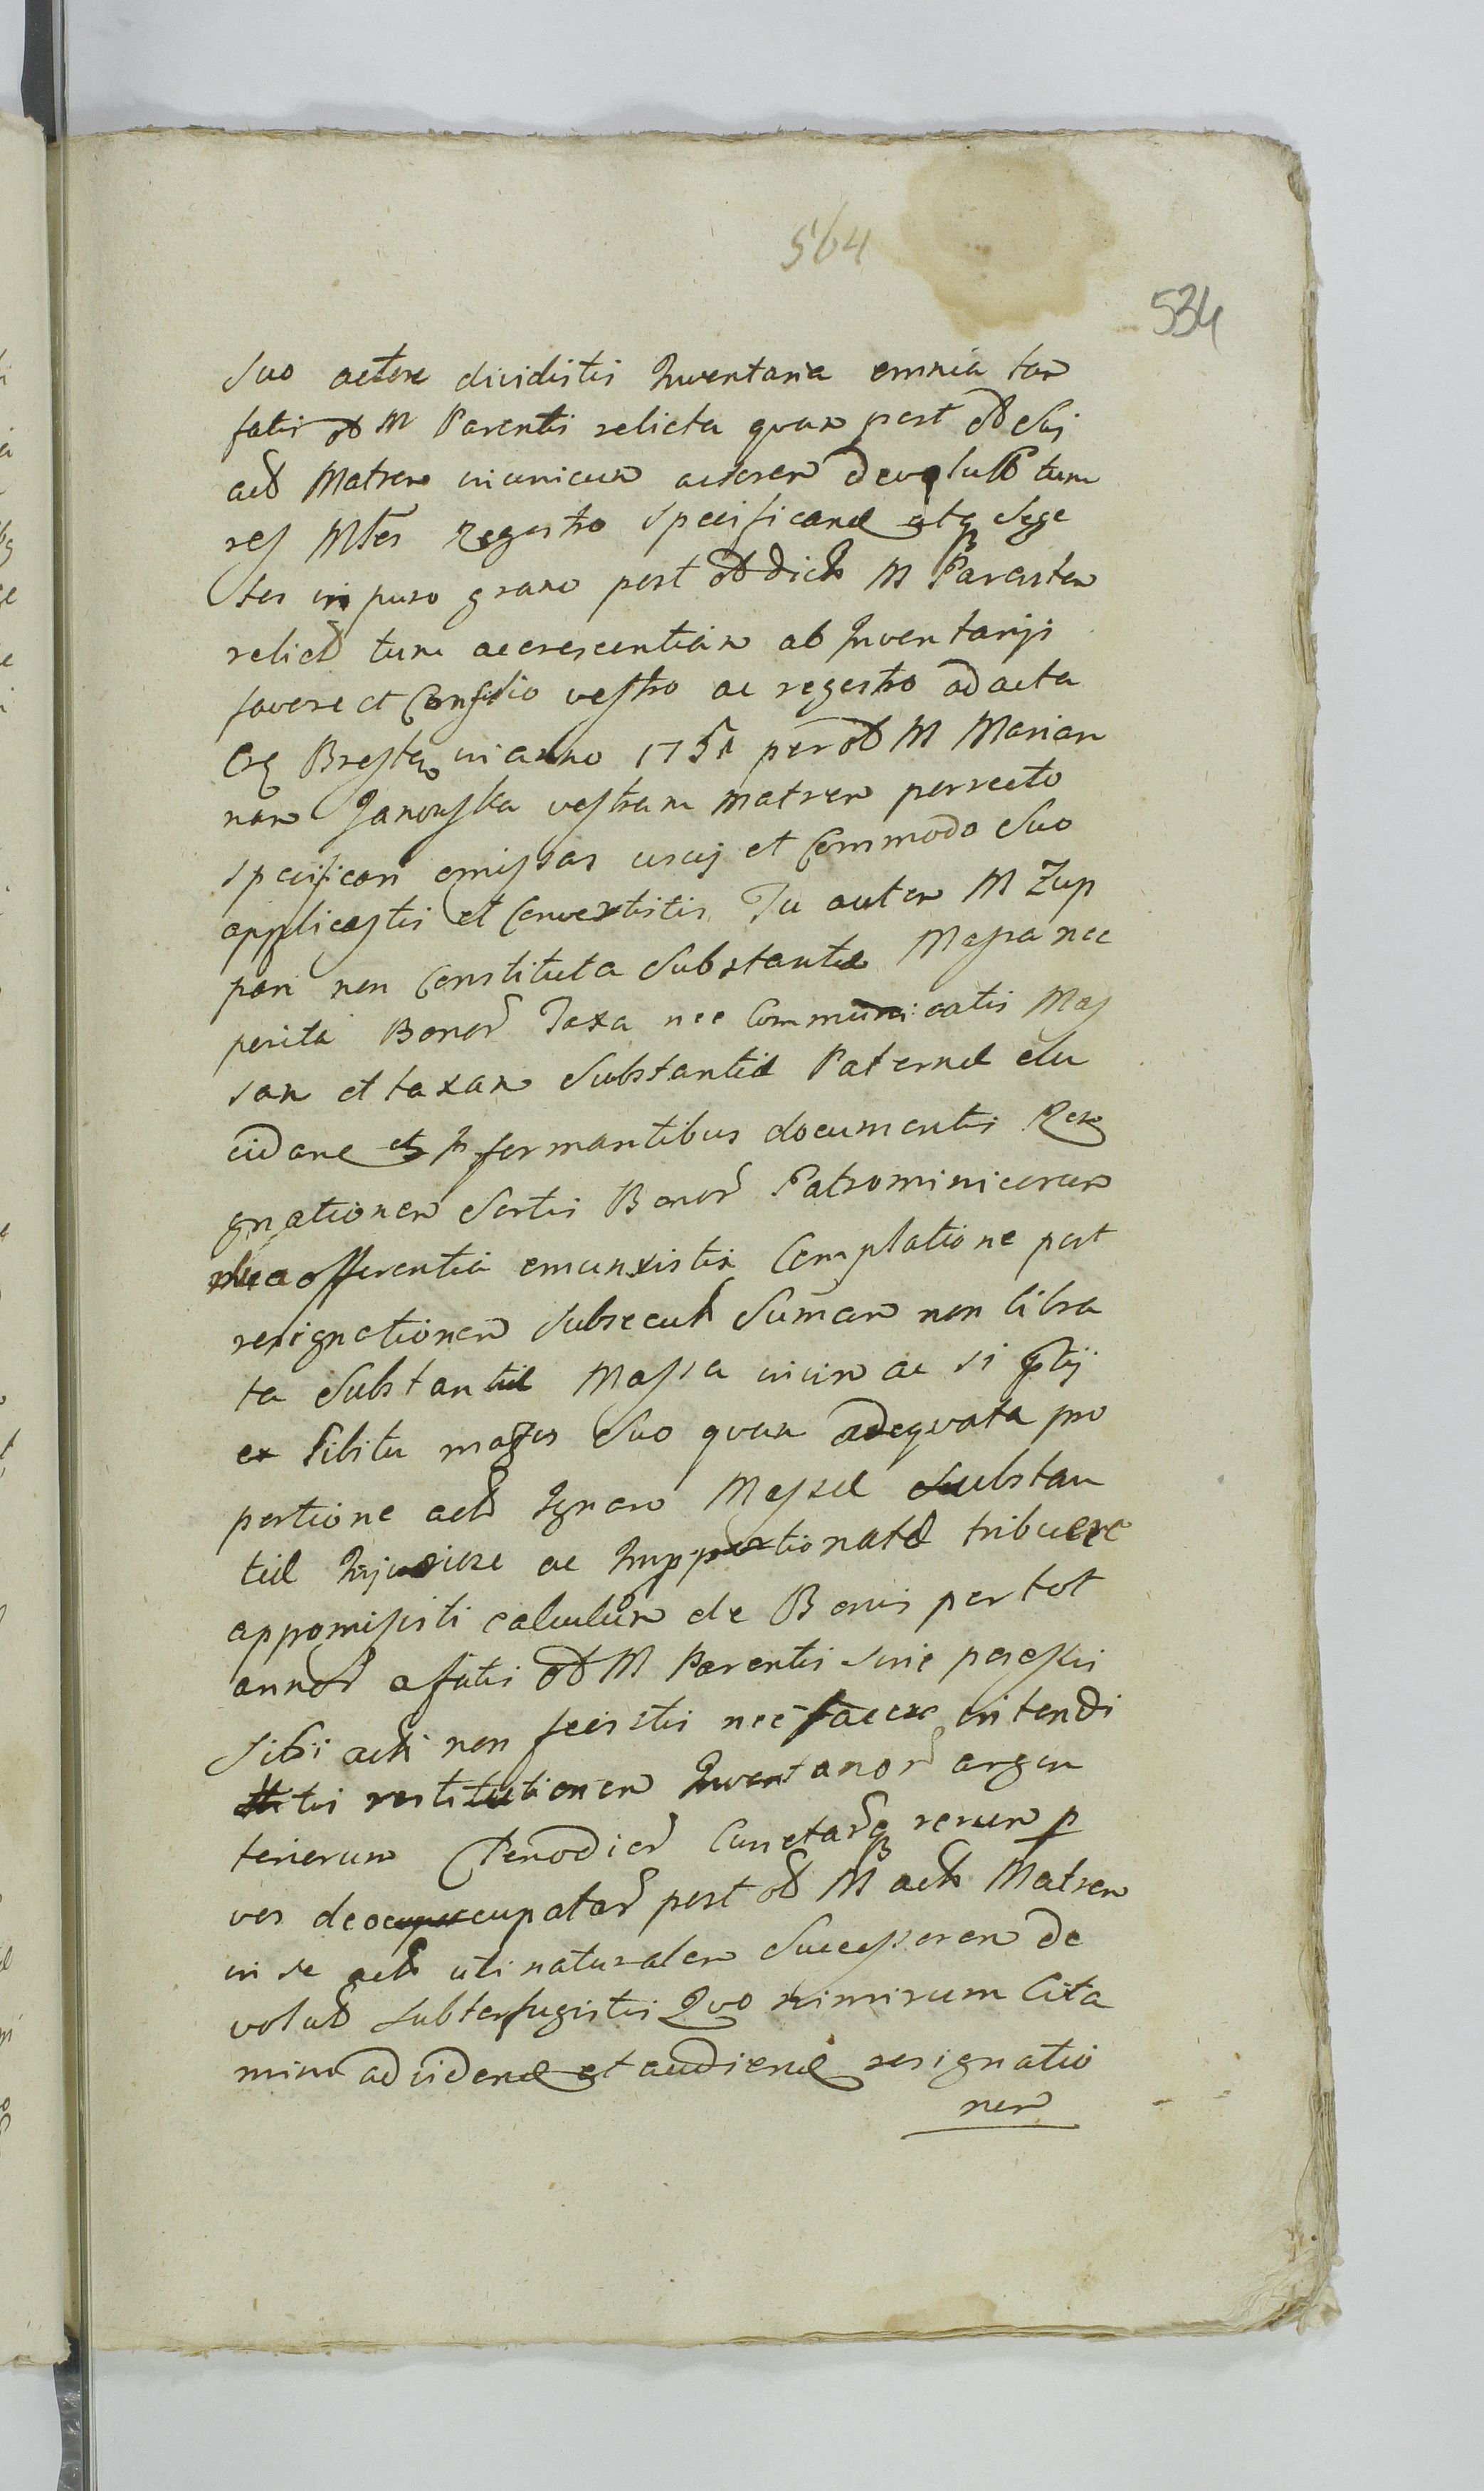 564
534
Suo actore dividistis Inventaria omnia tam
fatis od M Parentis relicta quam post od Sui
actd Matrem in unicum actorem devolutd tum
res Mtes Regestro specificand atq Sege
tes in puro grano post od dicti M Parentem
relictd tum accrescentiam ab Inventarijs
favore et Consilio vestro ac regestro ad acta
Crg Bresten in anno 1751 per od M Marian
nam Janowska vestram matrem porrecto
specificari omissas usuj et Commodo Suo
applicastis et Convertistis Tu autem M Zup
pari non Constituta Substantiæ Massa nec
perita Bonor Taxa nec Communicatis Mas
sam et taxam Substantiæ Paternæ elu
cidare et informantibus documentis Resi
gnationem Sortis Bonor Patrominicorum
offerentia emunxistis Complatione post
resignationem Subsecuti Summam non libra
ta Substantiæ Massa vicin ac si ptij
ex libitu magis Suo quam adequata pro
portione actd Ignaro Massæ Substan
tiæ Injuriose ac Improportionate tribuere
appromisisti calculum de Bonis per tot
annor a fatis od M Parentis Sine possessis
Sibi acti non fecistis nec facere intendi
stis restitutionem Inventarior argen
teriorum Clenodior Cunctarq rerum p
vos deoccupatar post od M acti Matrem
in se actd uti naturalem Successorem de
volutd subterfugistis Quo nimirum Cita
mini ad videnđ et audienđ resignatio
nem